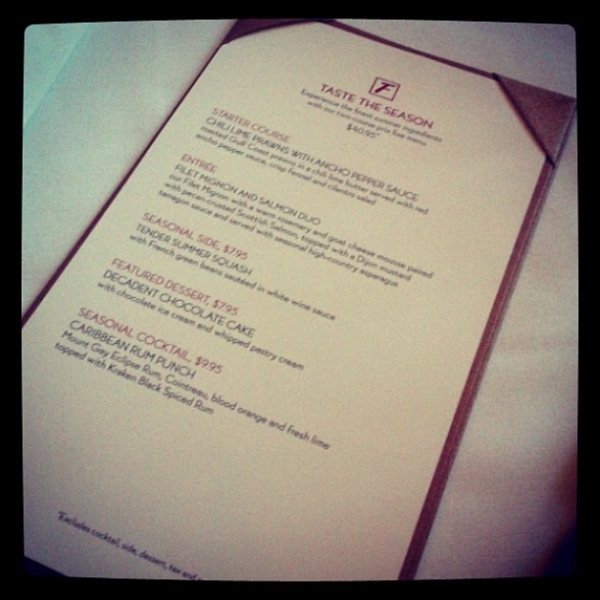 F
TASTE THE SEASON
Experience the finest summer ingredients
with our two-course prix fixe menu.
$40.95*
STARTER COURSE
CHILI LIME PRAWNS WITH ANCHO PEPPER SAUCE
roasted Gulf Coast prawns in a chili lime butter served with red
ancho pepper sauce, crisp fennel and cilantro salad
ENTRÉE
FILET MIGNON AND SALMON DUO
our Filet Mignon with a warm rosemary and goat cheese mousse paired
with pecan-crusted Scottish Salmon, topped with a Dijon mustard
tarragon sauce and served with seasonal high-country asparagus
SEASONAL SIDE, $7.95
TENDER SUMMER SQUASH
with French green beans sautéed in white wine sauce
FEATURED DESSERT, $7.95
DECADENT CHOCOLATE CAKE
with chocolate ice cream and whipped pastry cream
SEASONAL COCKTAIL, $9.95
CARIBBEAN RUM PUNCH
Mount Gay Eclipse Rum, Cointreau, blood orange and fresh lime
topped with Kraken Black Spiced Rum
*Excludes cocktail, side, dessert, tax and